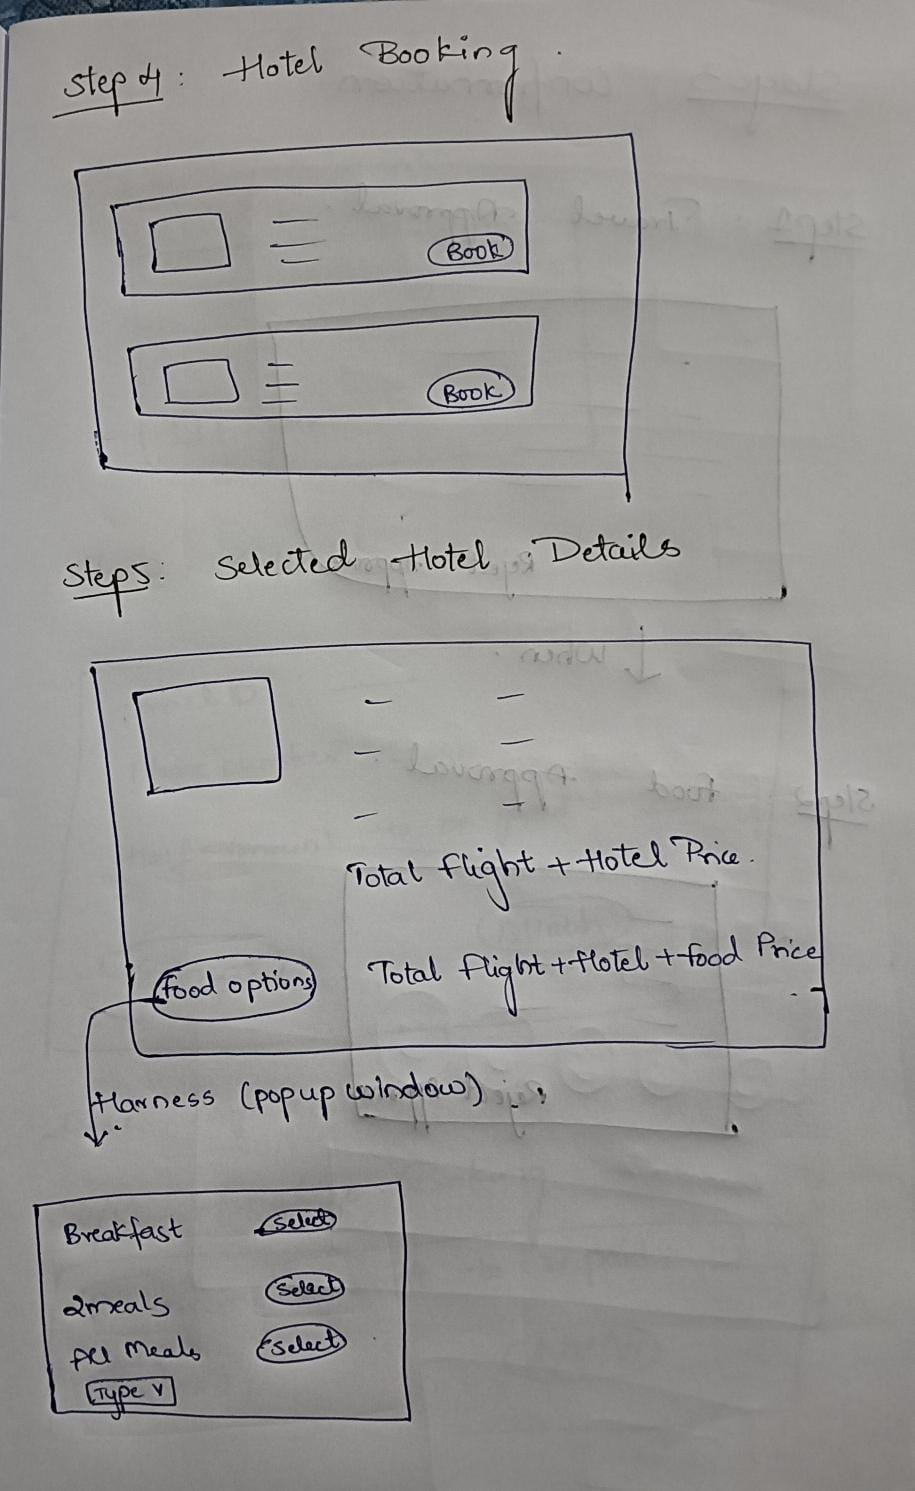 Step 4: Hotel Booking.
Book
Book
Step 5: Selected Hotel Details
Total flight + Hotel Price.
Total flight + Hotel + food Price
food options
Harness (popup window)
Breakfast Select
2meals Select
All Meals Select
Type v